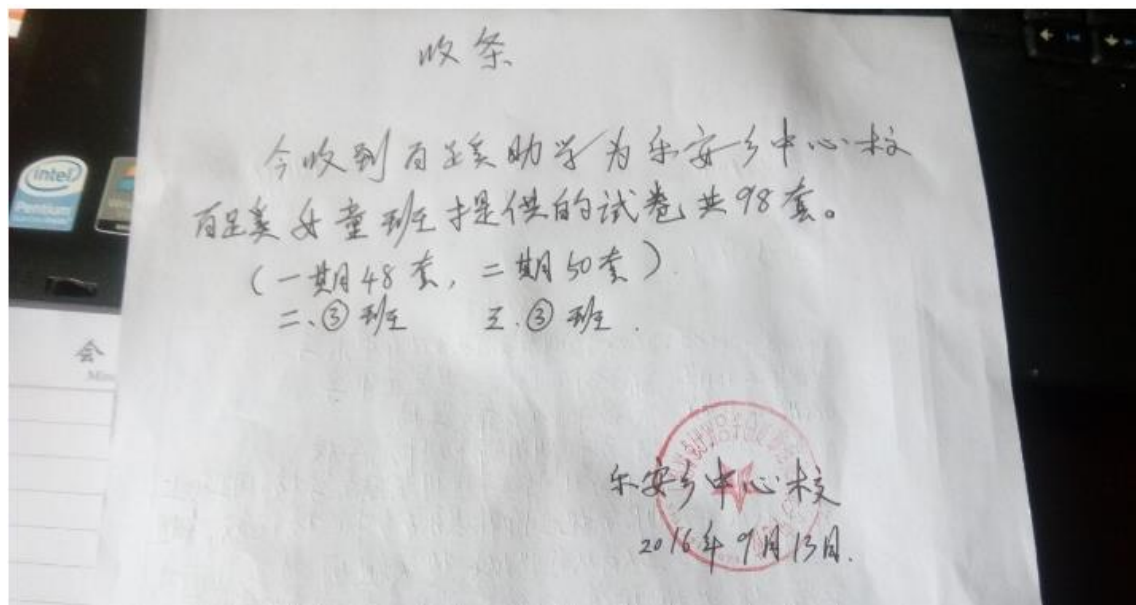 收条
今收到百足美助学为乐安乡中心校
百足美女童班提供的试卷共98套。
(一期48套,二期50套).
二、③班 三.③班.
乐安乡中心校
2016年9月13日.
intel
Pentium
会